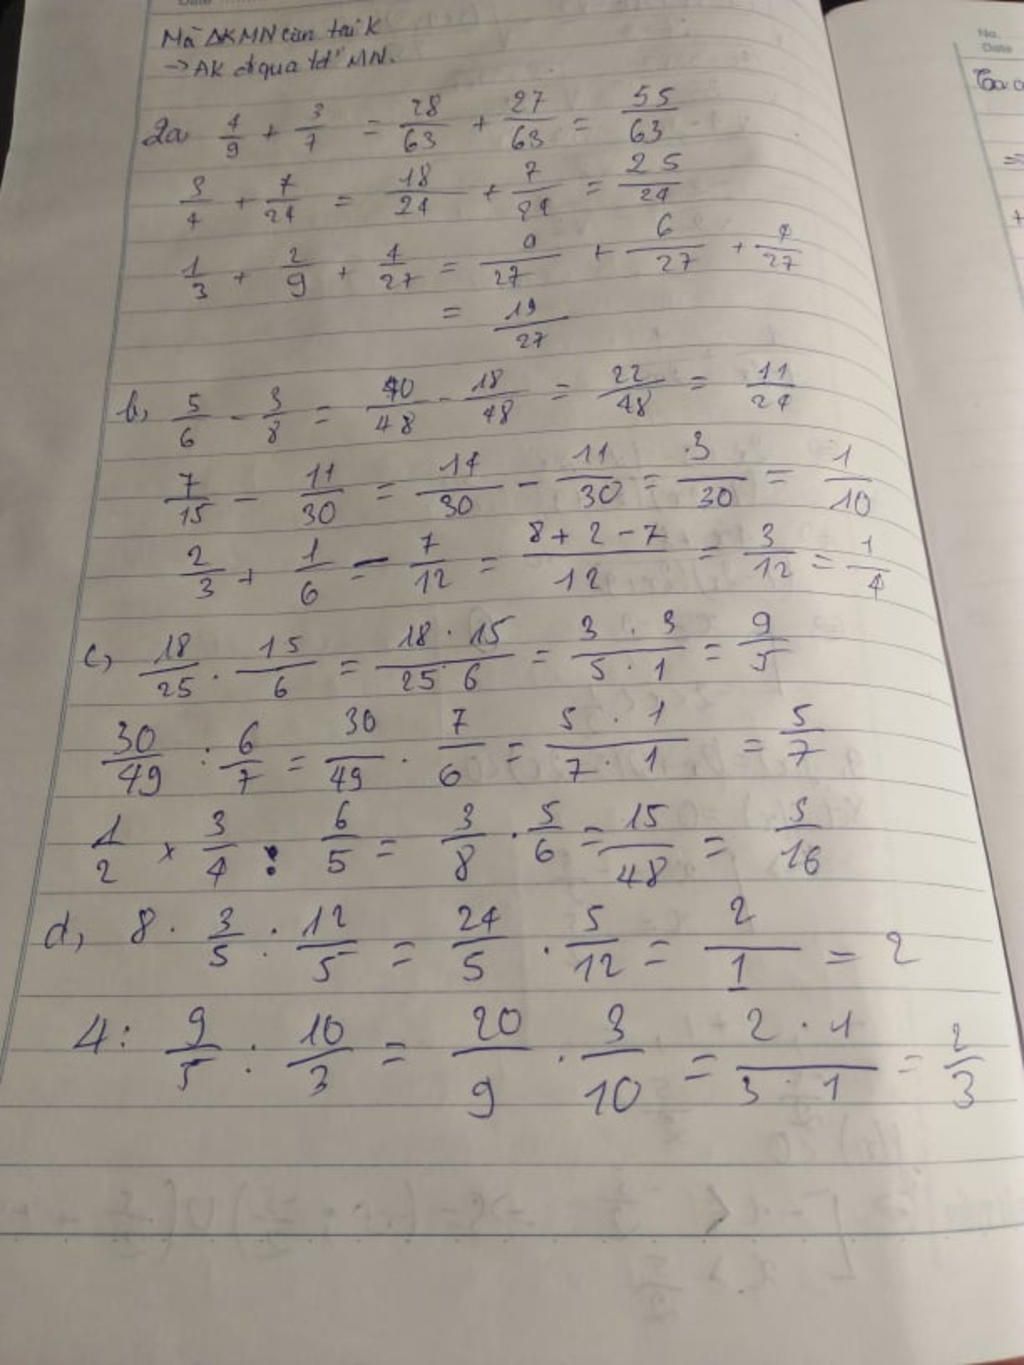 Date
Mà ΔKMN cân tại K
→ AK đi qua tđ' MN.
2a 4/9 + 3/7 = 28/63 + 27/63 = 55/63
3/4 + 7/24 = 18/24 + 7/24 = 25/24
1/3 + 2/9 + 4/27 = 9/27 + 6/27 + 4/27
= 19/27
b, 5/6 - 3/8 = 40/48 - 18/48 = 22/48 = 11/24
7/15 - 11/30 = 14/30 - 11/30 = 3/30 = 1/10
2/3 + 1/6 - 7/12 = 8+2-7/12 = 3/12 = 1/4
c, 18/25 . 15/6 = 18 . 15/25 . 6 = 3 . 3/5 . 1 = 9/5
30/49 : 6/7 = 30/49 . 7/6 = 5 . 1/7 . 1 = 5/7
1/2 x 3/4 : 6/5 = 3/8 . 5/6 = 15/48 = 5/16
d, 8 . 3/5 : 12/5 = 24/5 . 5/12 = 2/1 = 2
4 : 9/5 : 10/3 = 20/9 . 3/10 = 2 . 1/3 . 1 = 2/3
No.
Date